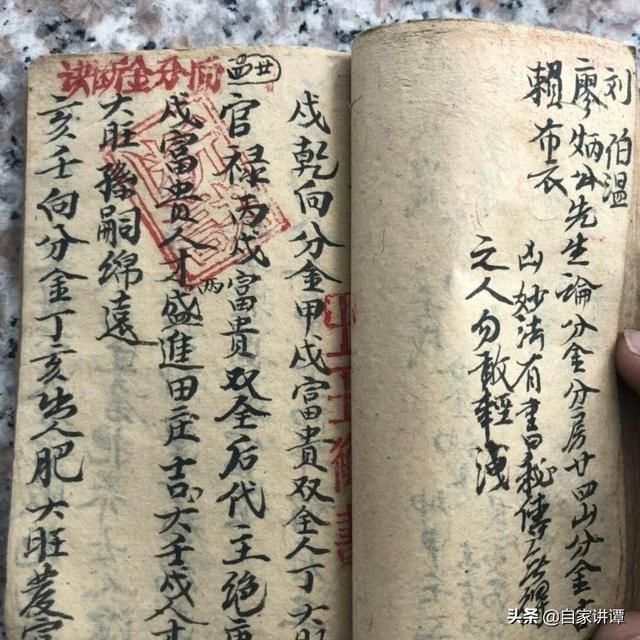 刘伯温
廖炳山先生論分金分房廿四山分金
賴布衣
山妙法有書秘傳
之人勿敢輕洩
戍乾向分金甲戍富貴双全人丁大旺
官禄丙戍富貴双全后代主绝
戍富貴人丁盛進田庄吉大壬戍人
大旺孫嗣绵遠
亥壬向分金丁亥出人肥大旺發官
分金断訣
头条 @自家讲谭